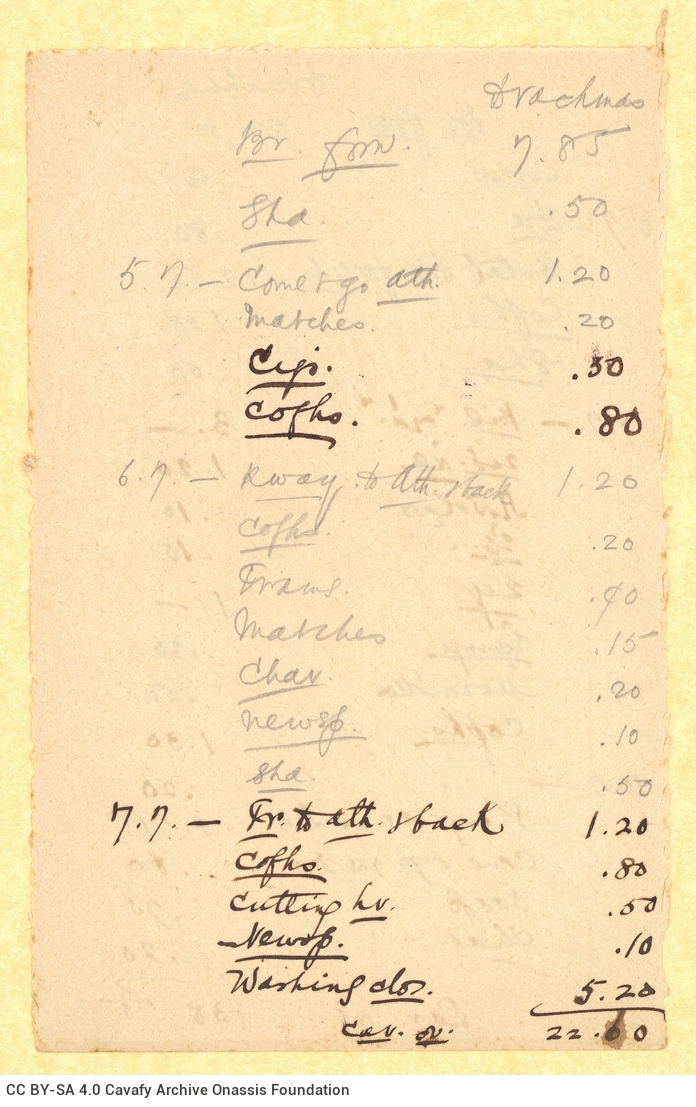 Drachmas
Br. from. 7.85
Sha. .50
5.7. — Come & go ath. 1.20
Matches. .20
Cigs. .50
Coffs. .80
6.7. — Rway. to Ath. & back 1.20
Coffs. .20
Trams. .40
Matches .15
Char. .20
Newsp. .10
Sha. .50
7.7. — Tr. to ath. & back 1.20
Coffs. .80
Cutting hr. .50
Newsp. .10
Washing clos. 5.20
Car. ov. 22.60